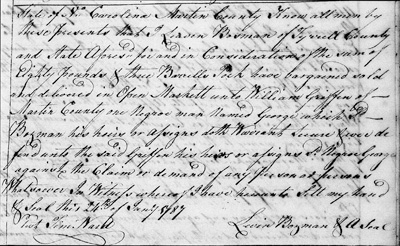 State of No Carolina Martin County Know all men by
these presents that I Levin Bozman of Tyrrell County
and State Aforesd for and in Consideration of the sum of
Eighty Pounds & three Barrells Pork have bargained sold
and delivered in Open Markett unto William Griffen of
Martin County one Negroe man Named George which sd
Bozman his heirs or assigns doth Warrant Secure & ever de
fend unto the said Griffen his heirs or assigns sd Negroe George
against the Claim or demand of any Person or Persons
Whatsoever In Witness whereof I have hereunto Sett my hand
& Seal this 24th of Jany 1787
Levin Bozman & a Seal